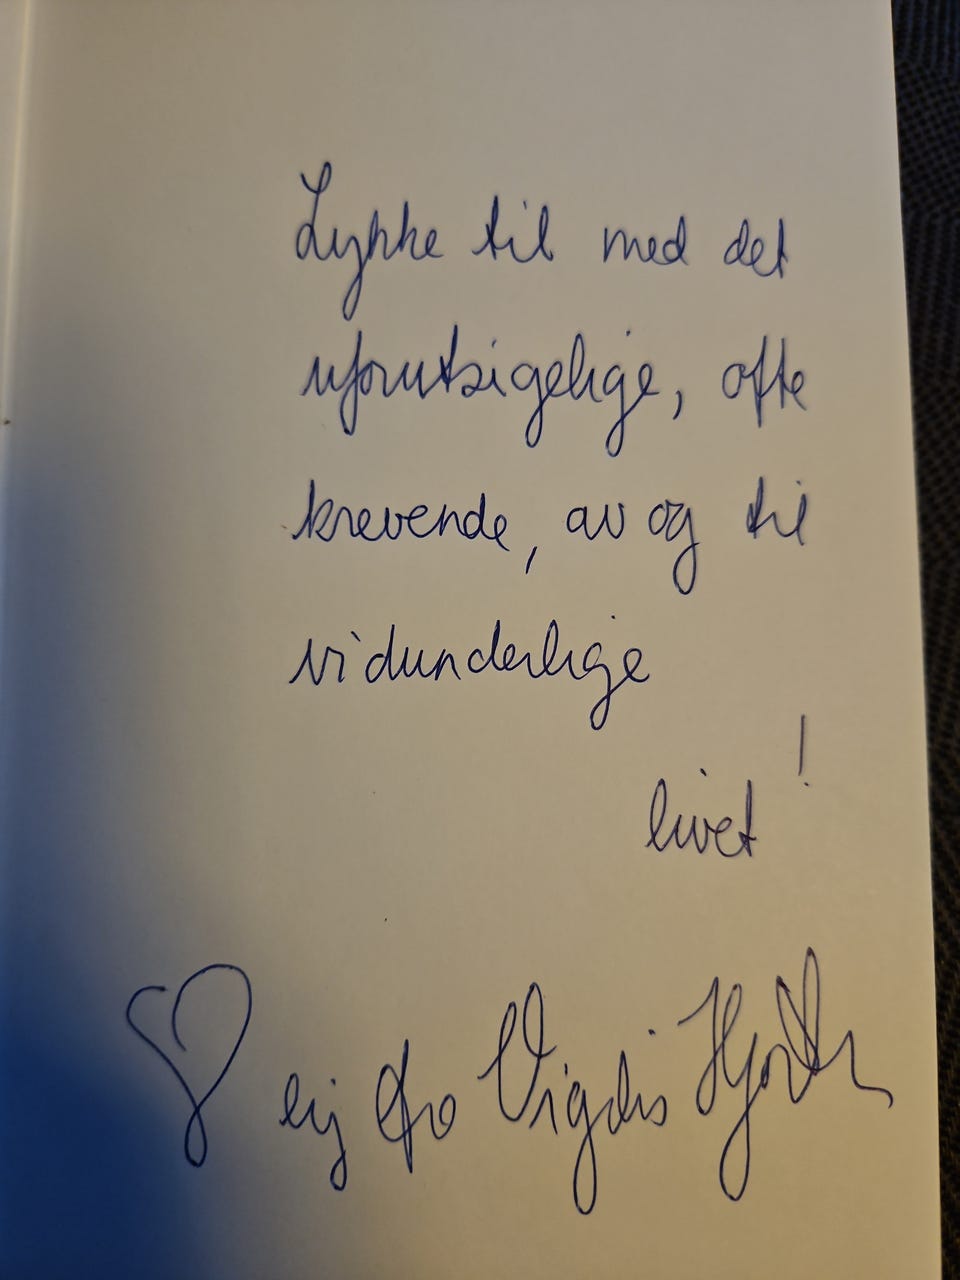 Lykke til med det
uforutsigelige, ofte
krevende, av og til
vidunderlige
livet!
Vigdis Hjorth